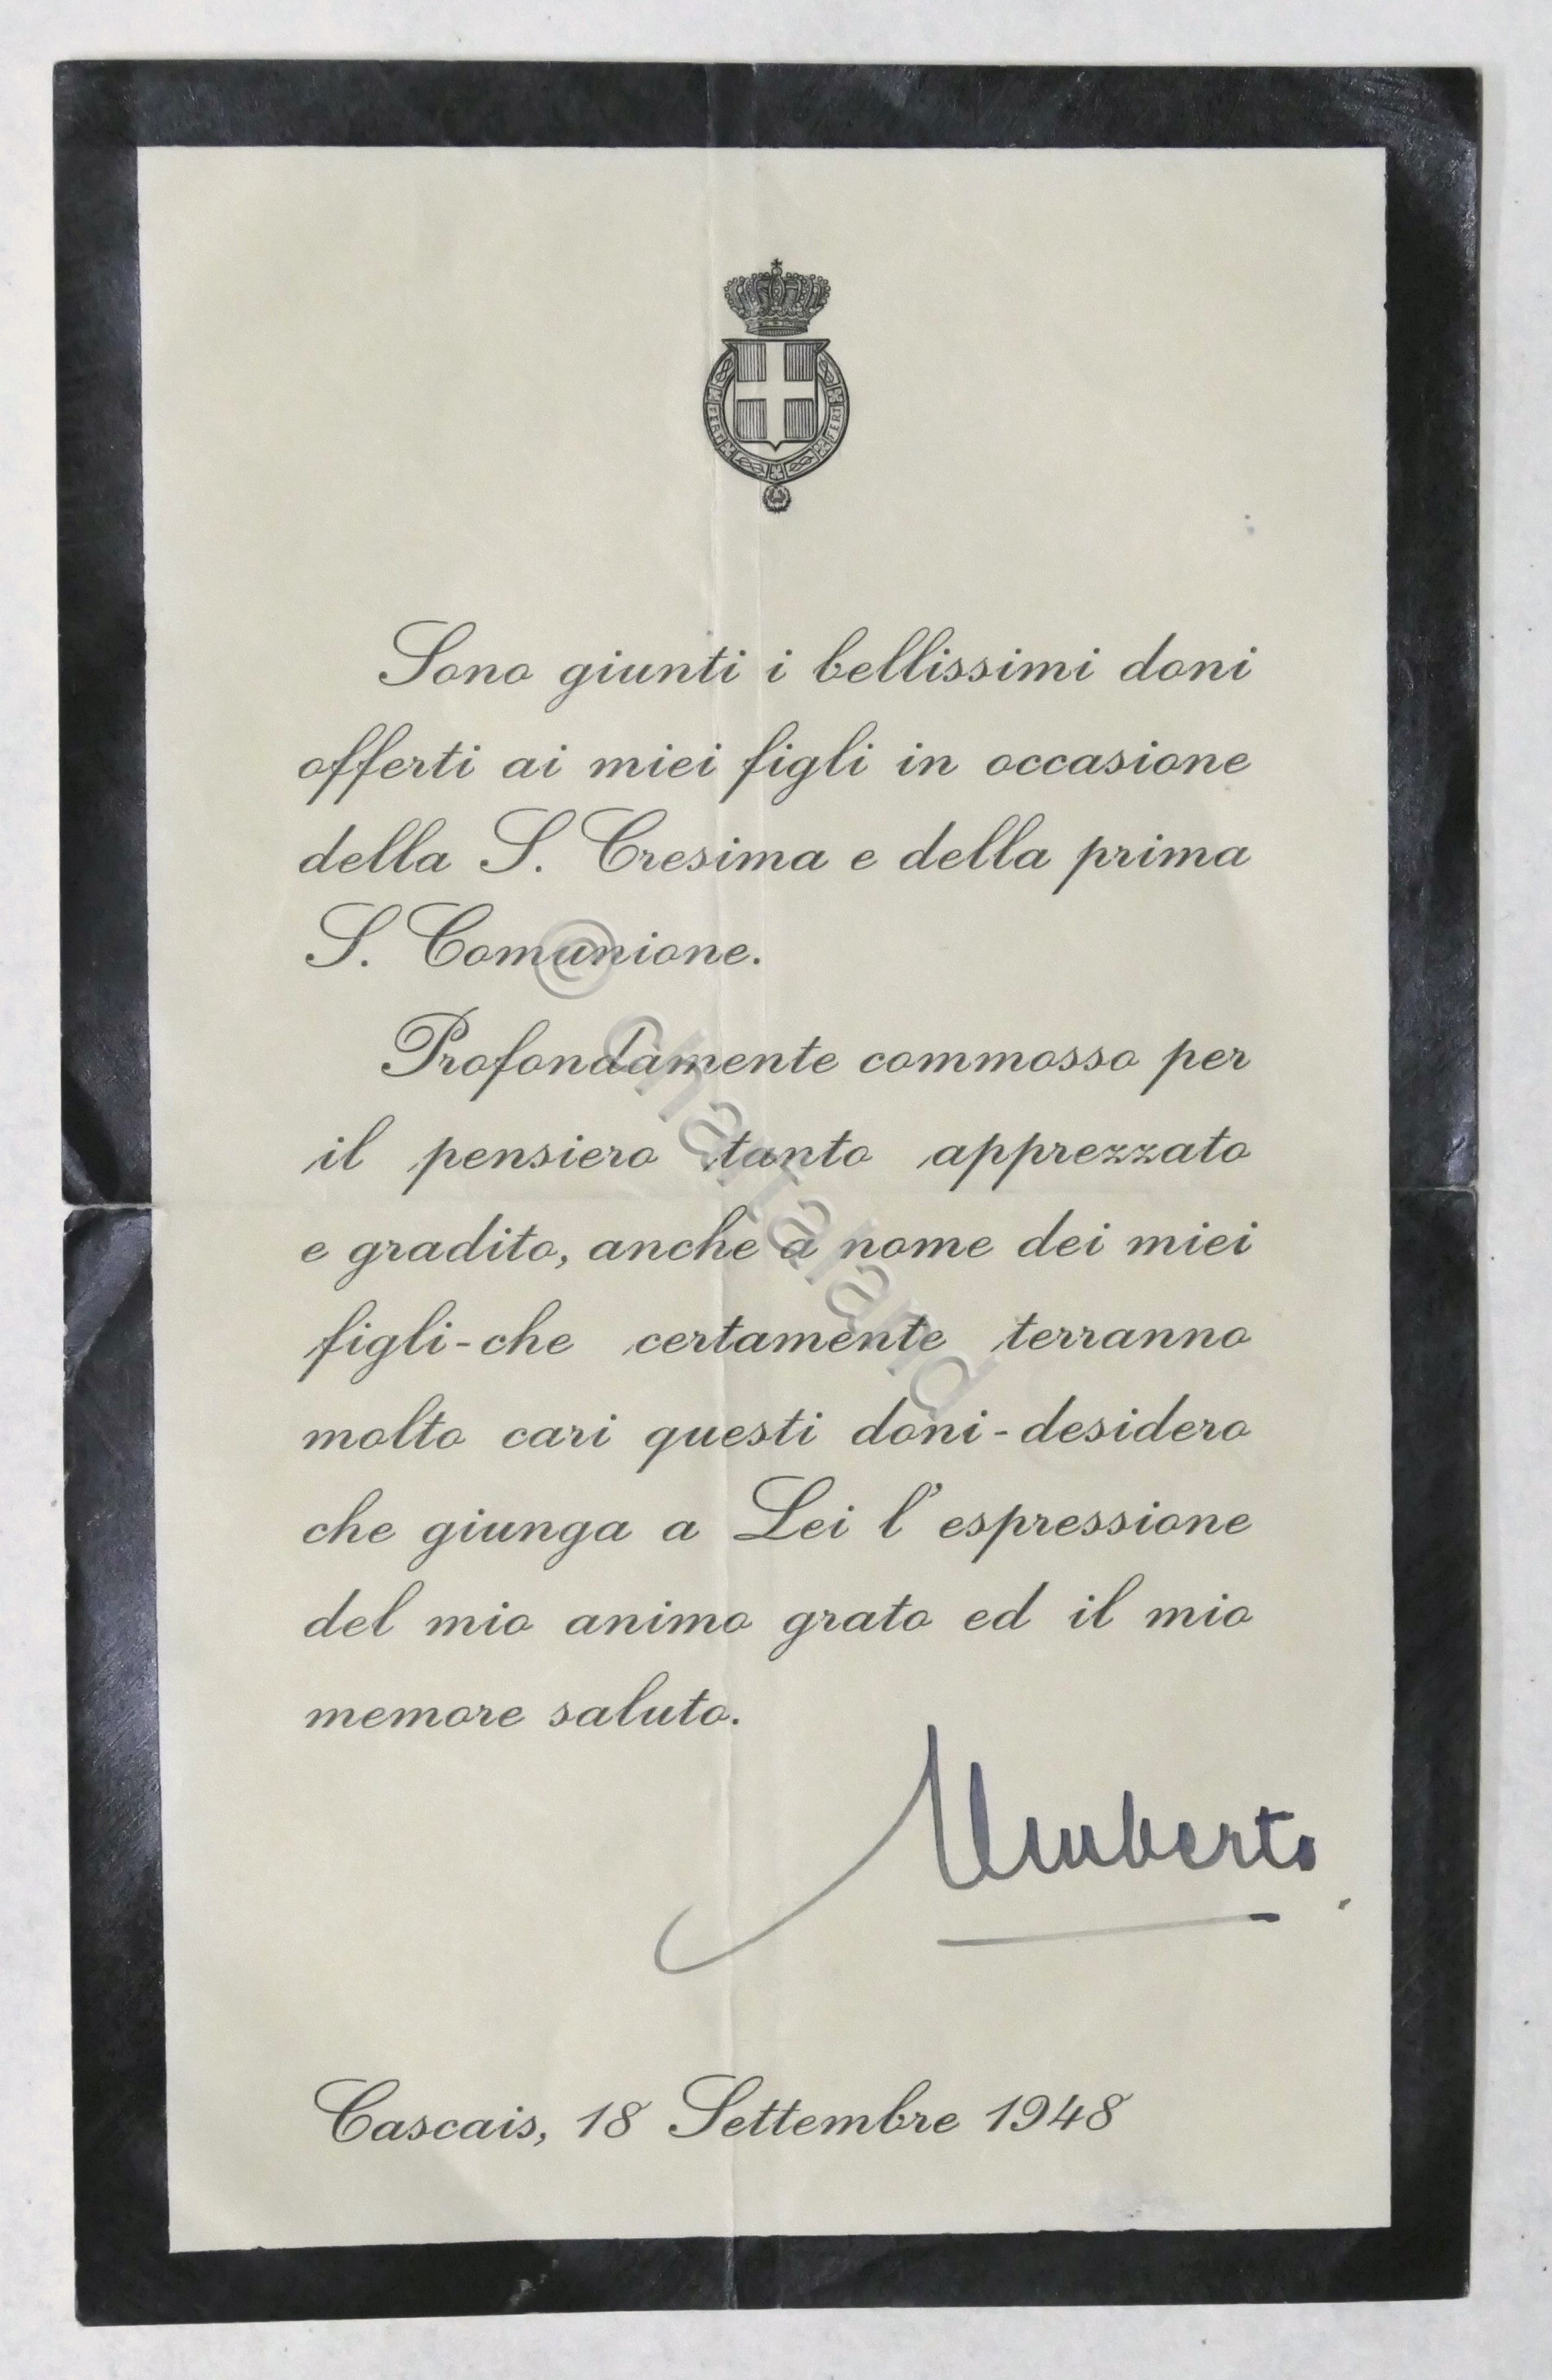 FERT FERT
Sono giunti i bellissimi doni
offerti ai miei figli in occasione
della S. Cresima e della prima
S. Comunione.
Profondamente commosso per
il pensiero tanto apprezzato
e gradito, anche a nome dei miei
figli-che certamente terranno
molto cari questi doni-desidero
che giunga a Lei l'espressione
del mio animo grato ed il mio
memore saluto.
Umberto
Cascais, 18 Settembre 1948
© chartaland